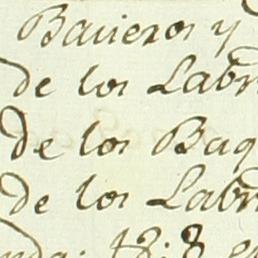 Bauieros y
de los Labr
de los Baq
de los Labr
nda: 18:8 e